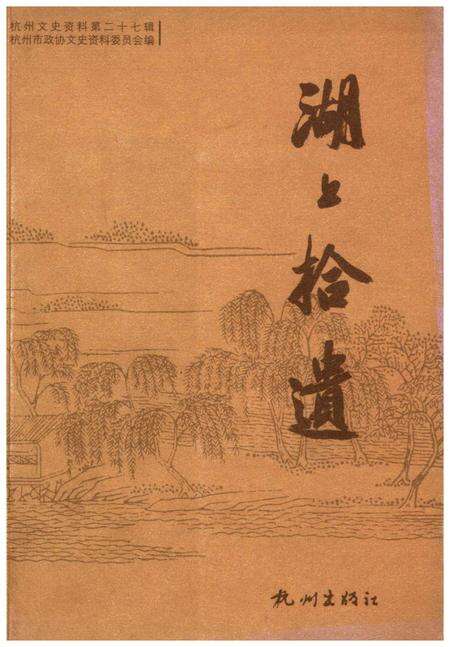 杭州文史资料第二十七辑
杭州市政协文史资料委员会编
湖上拾遗
杭州出版社